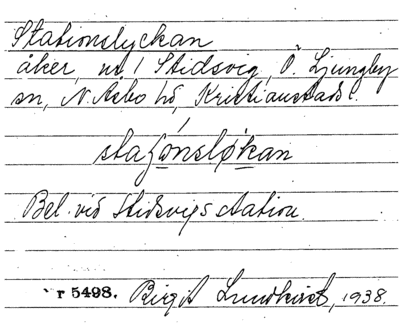 Stationslyckan
åker, nr 1 Stidsvig, Ö. Ljungby
sn, N. Åsbo hd, Kristianstads l.
staʃónsløkan
Bel. vid Stidsvigs station.
r 5498. Birgit Lundkvist, 1938.